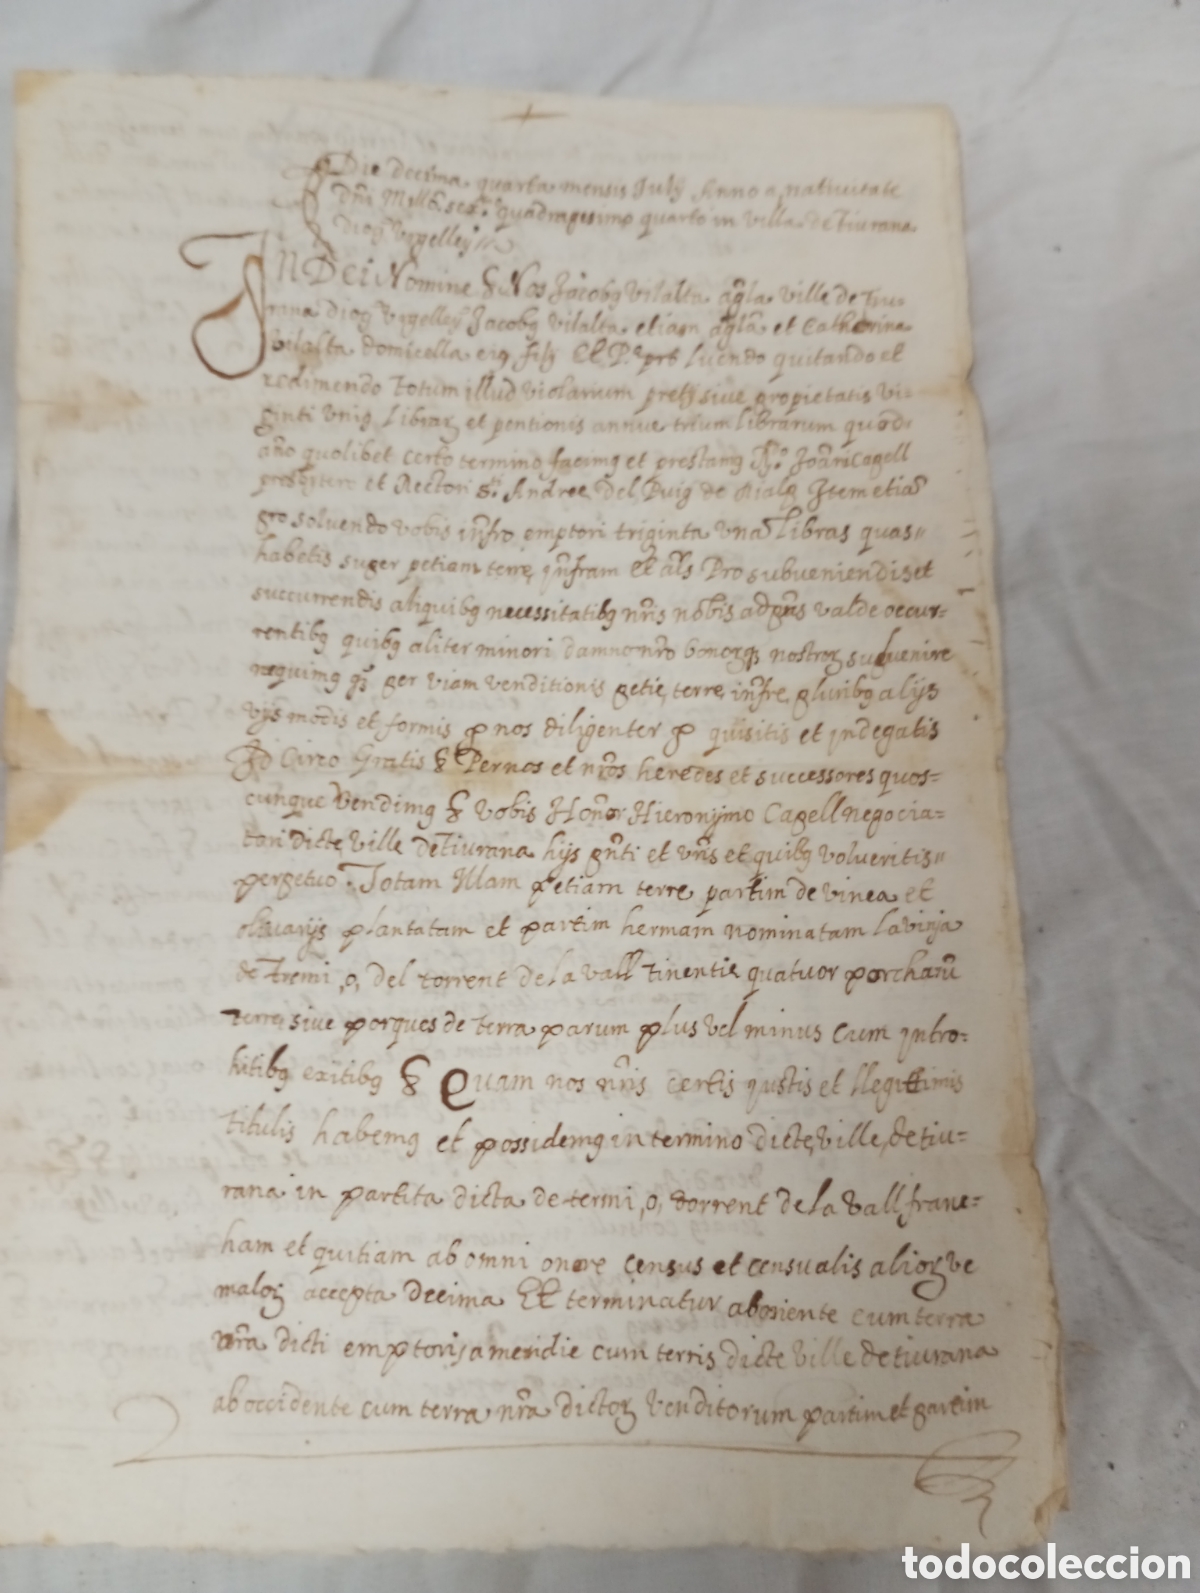 Die Decima quarta mensis July Anno a nativitate
Dñi Mill.º sex.º quadragesimo quarto in villa de Tiurana
Diog. Vrgelley.
IN DEI Nomine & Nos Jacobg Vilalta agla ville de Tiu-
rana Diog. Vrgelley Jacobg Vilalta etiam agla et Catherina
Vilalta domicella eig filj Et luendo quitando et
redimendo totum illud violarium pretj sive propietatis vi-
ginti vnig Libraz et pentionis annue trium librarum quod
año quolibet certo termino facimg et prestamg Joañi Cagell
presbytero et Rectori Sti Andree Del Puig de Rialg Item etia
pro solvendo vobis infro emptori triginta vna Libras quas"
habetis super petiam terre infram Et als Pro subveniendis et
succurrendis aliquibg necessitatibg nris nobis ad pñs valde occur-
rentibg quibg aliter minori damno nro bonorq nostroz subvenire
nequimg ꝙ per viam venditionis petie terre infre pluribg alijs
vijs modis et formis ꝑ nos diligenter ꝑ quisitis et indegatis
Id Circo Gratis & Per nos et nros heredes et successores quos-
cunque Vendimg & vobis Honor Hieronymo Cagell negocia-
tori dicte ville de Tiurana hijs pñti et vris et quibg volueritis"
perpetuo. Totam Illam petiam terre partim de vinea et
olivarijs plantatam et partim hermam nominatam la vinja
de Tremi, o, del torrent de la vall Tinentie quatuor porcharũ
terre sive porques de terra parum plus vel minus cum intro-
hitibg exitibg & Quam nos nris certis justis et llegittimis
titulis habemg et possidemg in termino dicte ville de tiu-
rana in partita dicta de termi, o, torrent de la vall franc-
ham et quitiam ab omni onere census et censualis alioz ve
maloz accepta Decima Et terminatur ab oriente cum terra
vra dicti emptoris a meridie cum terris dicte ville de tiurana
ab occidente cum terra nra dictoz venditorum partim et partim
todocoleccion